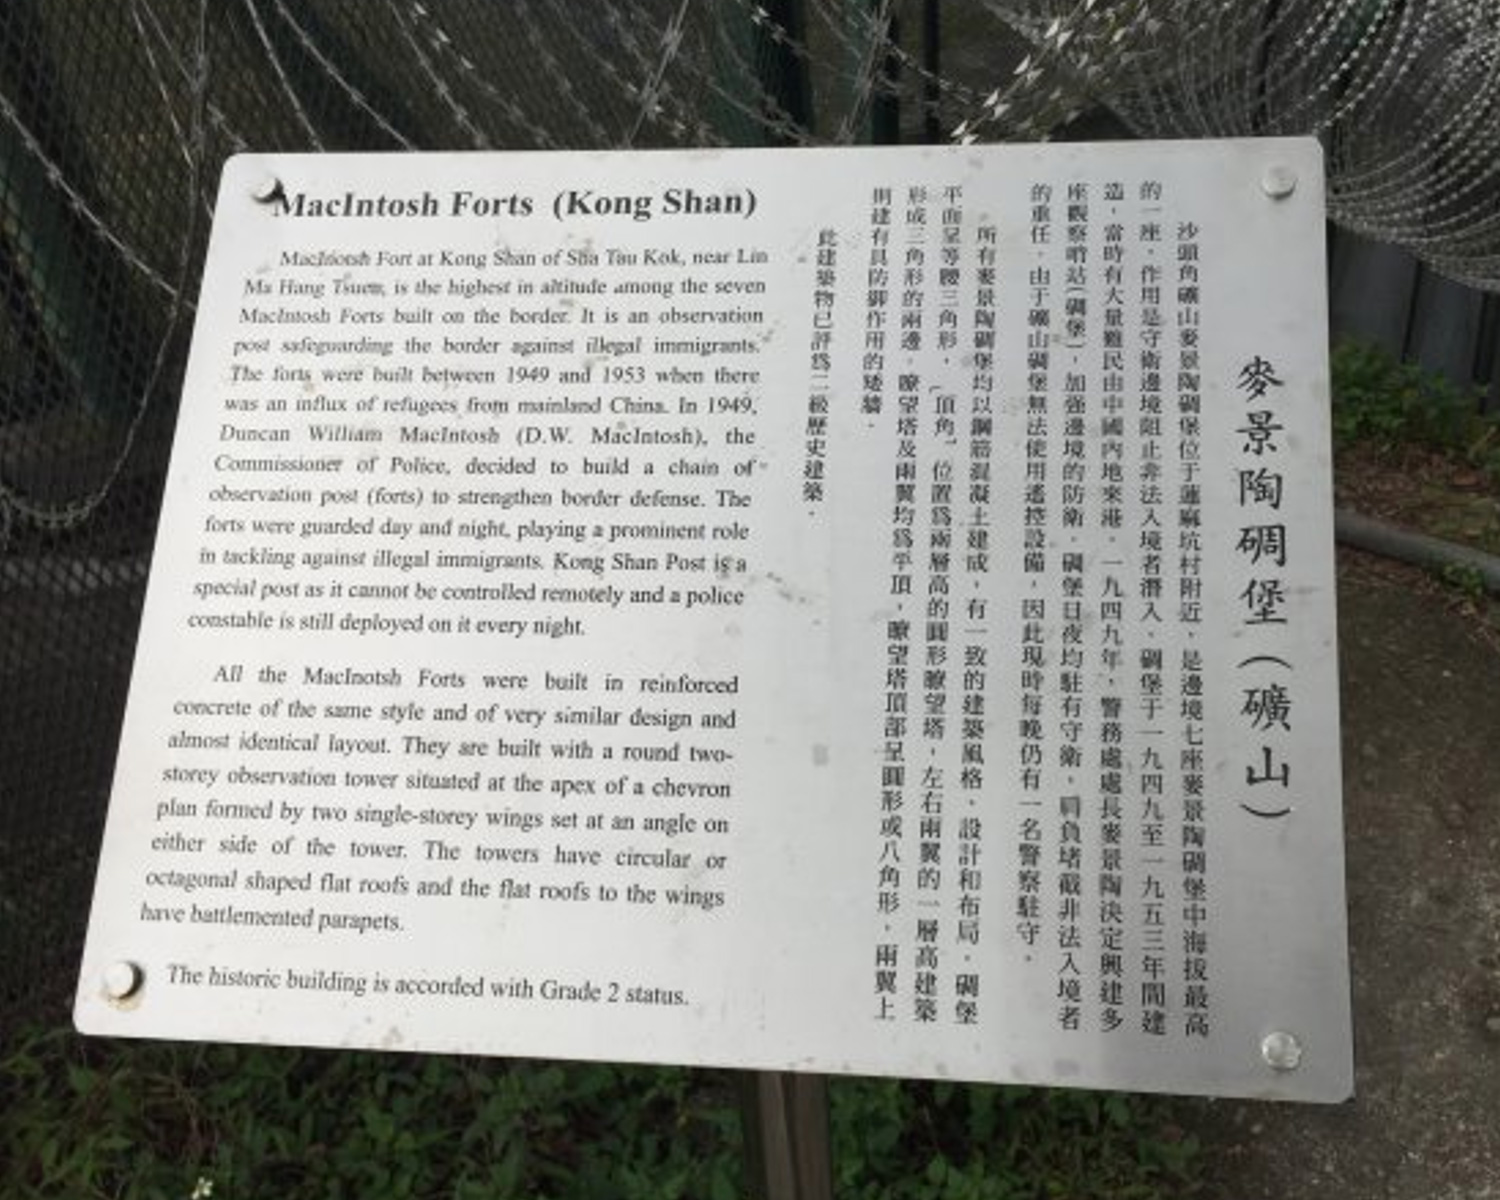 MacIntosh Forts (Kong Shan)
MacInotsh Fort at Kong Shan of Sha Tau Kok, near Lin
Ma Hang Tsuen, is the highest in altitude among the seven
MacIntosh Forts built on the border. It is an observation
post safeguarding the border against illegal immigrants.
The forts were built between 1949 and 1953 when there
was an influx of refugees from mainland China. In 1949,
Duncan William MacIntosh (D.W. MacIntosh), the
Commissioner of Police, decided to build a chain of
observation post (forts) to strengthen border defense. The
forts were guarded day and night, playing a prominent role
in tackling against illegal immigrants. Kong Shan Post is a
special post as it cannot be controlled remotely and a police
constable is still deployed on it every night.
All the MacInotsh Forts were built in reinforced
concrete of the same style and of very similar design and
almost identical layout. They are built with a round two-
storey observation tower situated at the apex of a chevron
plan formed by two single-storey wings set at an angle on
either side of the tower. The towers have circular or
octagonal shaped flat roofs and the flat roofs to the wings
have battlemented parapets.
The historic building is accorded with Grade 2 status.
麥景陶碉堡（礦山）
沙頭角礦山麥景陶碉堡位于蓮麻坑村附近，是邊境七座麥景陶碉堡中海拔最高
的一座，作用是守衛邊境阻止非法入境者潛入。碉堡于一九四九至一九五三年間建
造，當時有大量難民由中國內地來港。一九四九年，警務處處長麥景陶決定興建多
座觀察哨站（碉堡），加強邊境的防衛。碉堡日夜均駐有守衛，肩負堵截非法入境者
的重任。由于礦山碉堡無法使用遙控設備，因此現時每晚仍有一名警察駐守。
所有麥景陶碉堡均以鋼筋混凝土建成，有一致的建築風格、設計和布局。碉堡
平面呈等腰三角形，「頂角」位置爲兩層高的圓形瞭望塔，左右兩翼的一層高建築
形成三角形的兩邊。瞭望塔及兩翼均爲平頂，瞭望塔頂部呈圓形或八角形，兩翼上
則建有具防御作用的矮牆。
此建築物已評爲二級歷史建築。